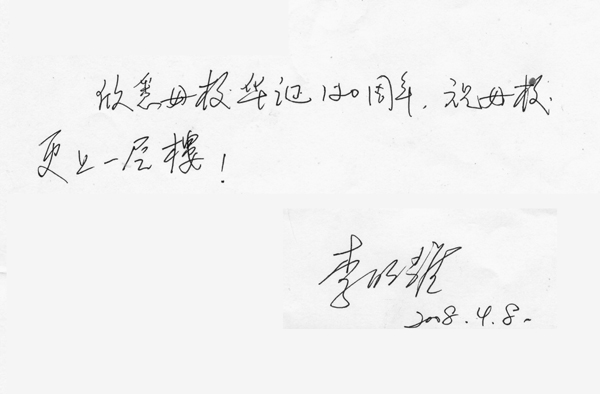 欣悉母校华诞120周年，祝母校
更上一层樓！
李明雄
2008.4.8.